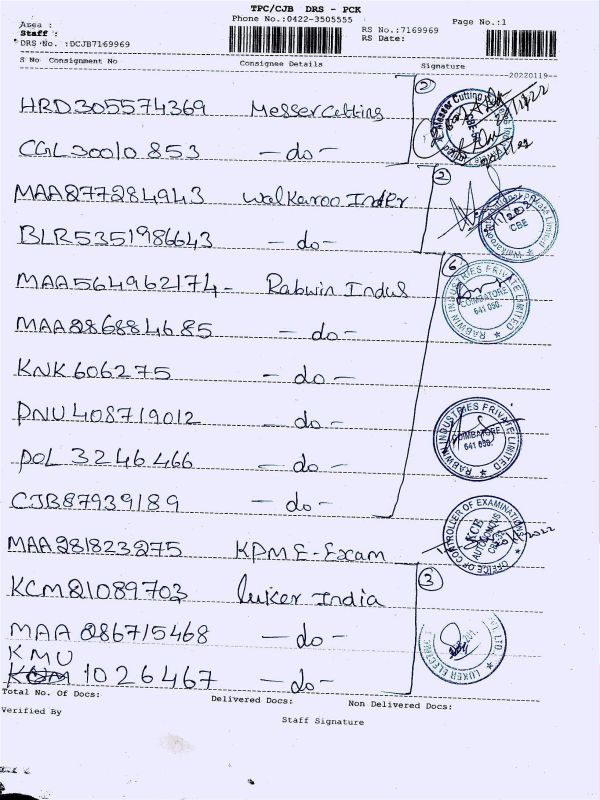 TPC/CJB DRS - PCK
Area :
Phone No.:0422-3505555
Page No.:1
Staff :
RS No.:7169969
DRS No. :DCJB7169969
RS Date:
S No Consignment No Consignee Details Signature
20220119
HRD305574369 Messer Cutting
CGL30010853 -do-
MAA277284943 Walkaroo Inder
BLR5351986643 -do-
MAA564962174- Rabwin Indus
MAA286884685 -do-
KNK606275 -do-
PNU408719012 -do-
POL3246466 -do-
CJB87939189 -do-
MAA281823275 KPME-Exam
KCM21089703 luker India
MAA 286715468 -do-
KMU
1026467 -do-
2
2
6
3
RABWIN INDUSTRIES PRIVATE LIMITED
COIMBATORE
641 050.
RABWIN INDUSTRIES PRIVATE LIMITED
COIMBATORE
641 050.
OFFICE OF CONTROLLER OF EXAMINATIONS
AUTONOMOUS
CBE
Total No. Of Docs: Delivered Docs: Non Delivered Docs:
Verified By
Staff Signature